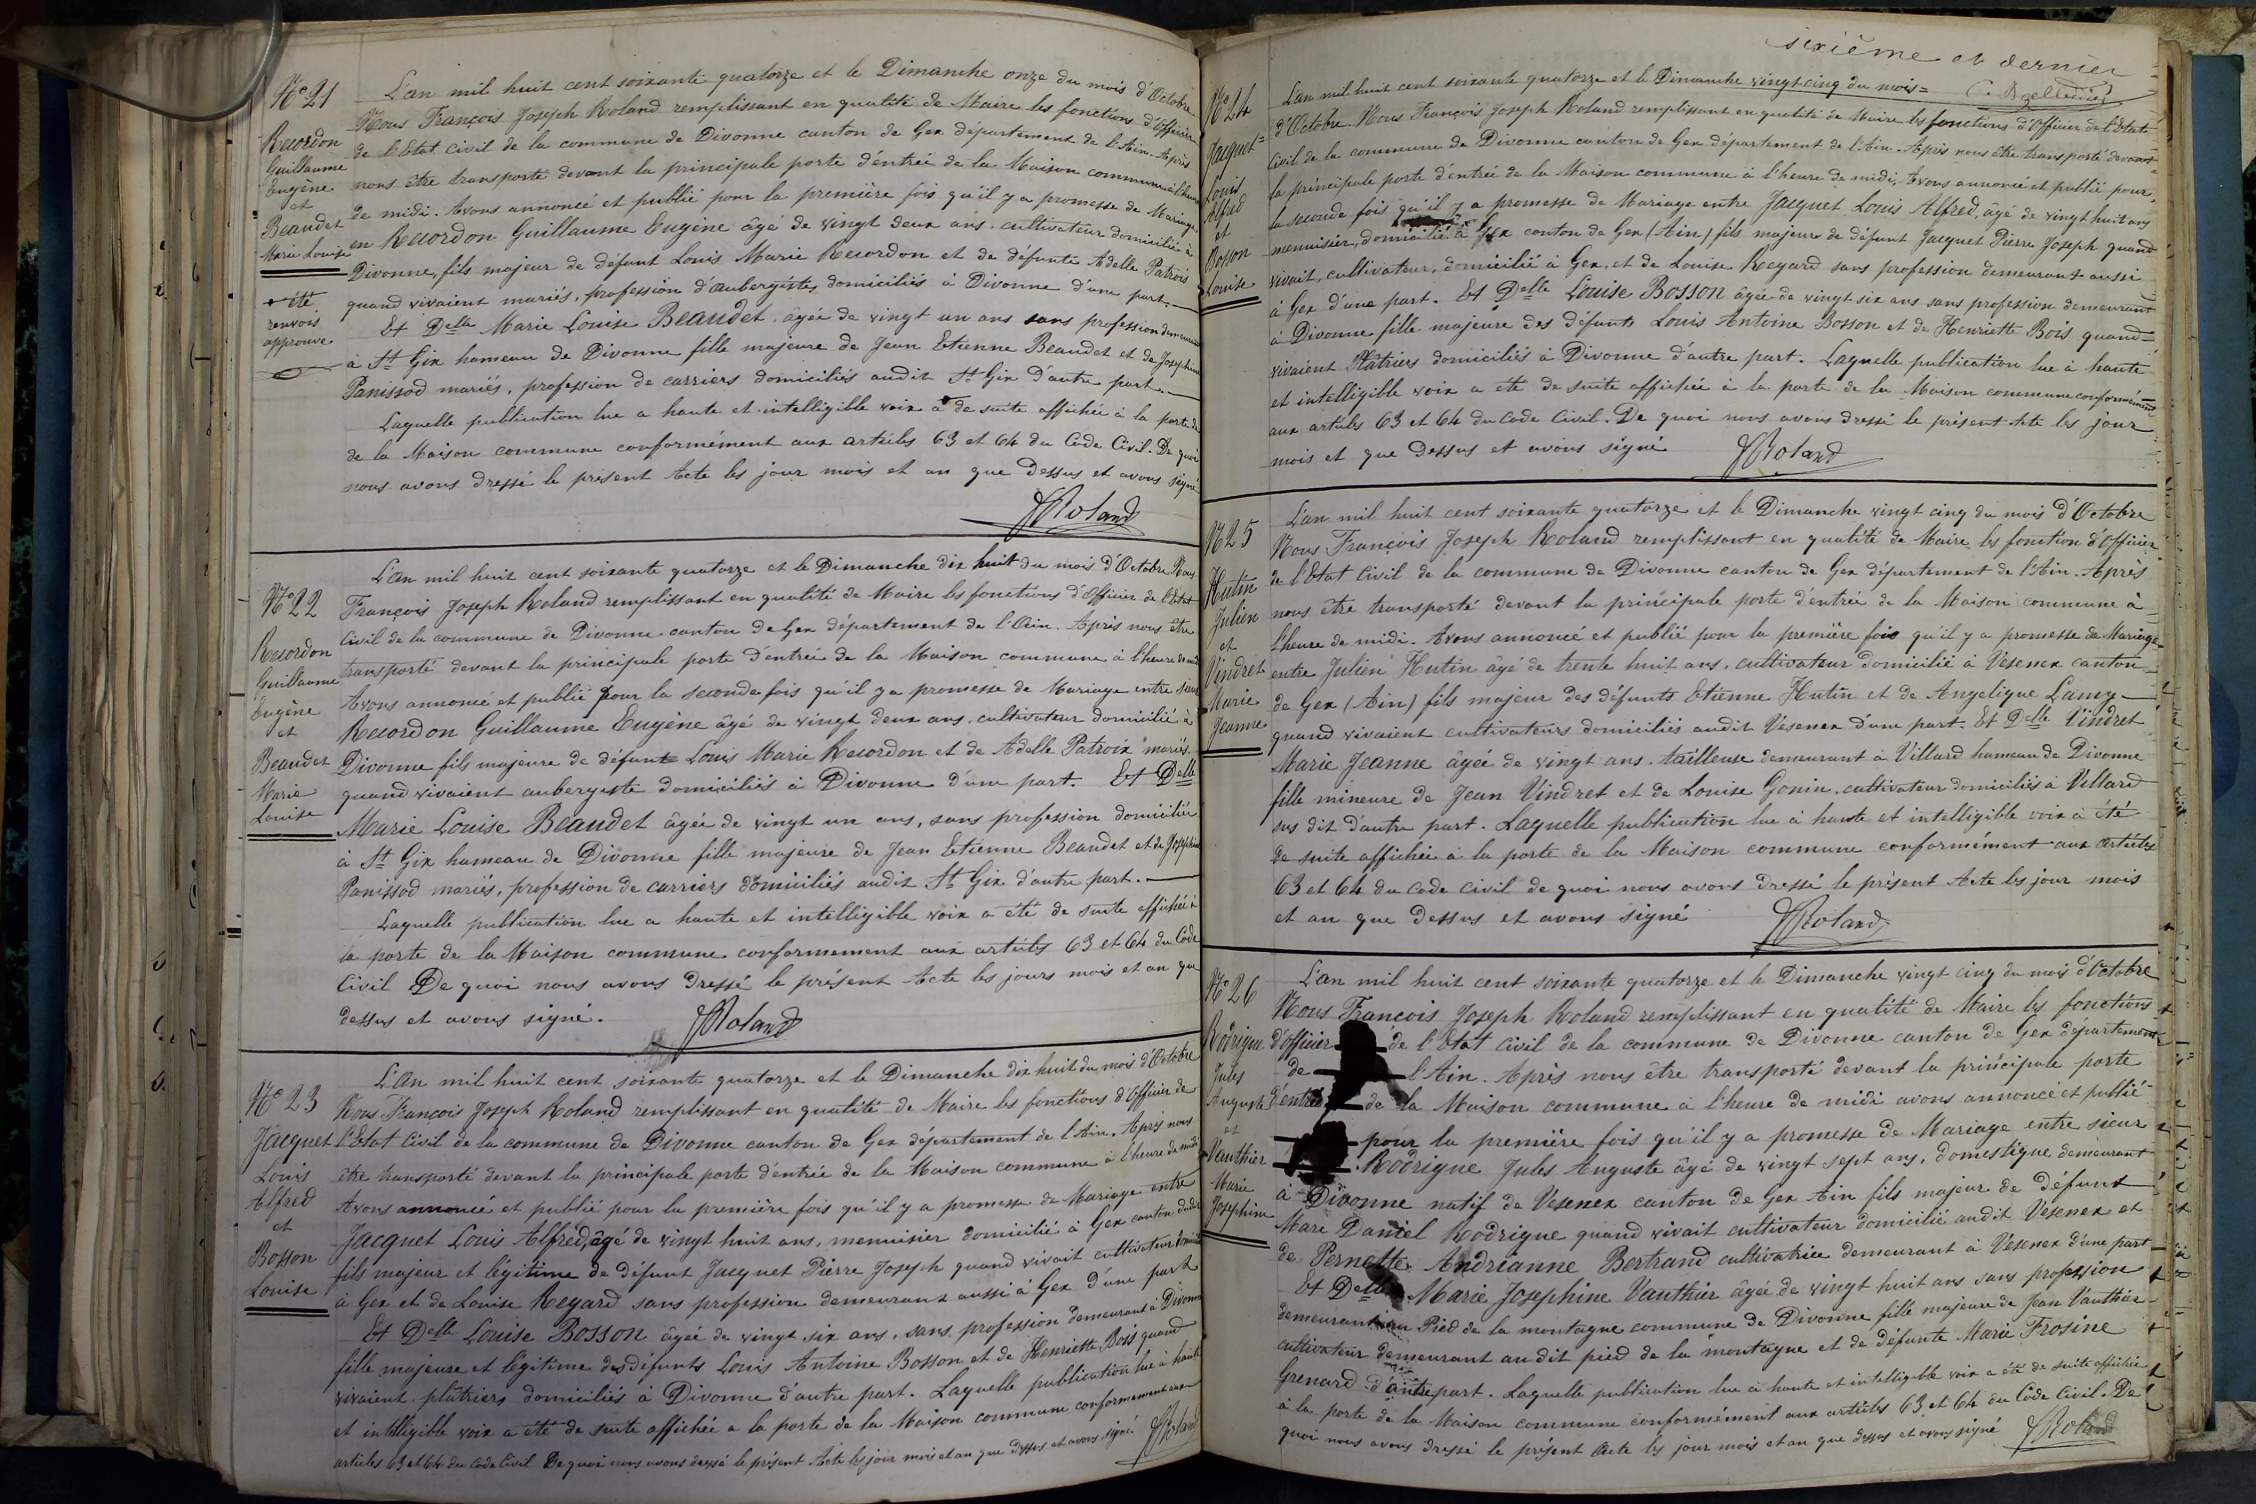 N° 21
Recordon
Guillaume
Eugène
et
Beaudet
Marie Louise
+ été
renvois
approuvé
L'an mil huit cent soixante quatorze et le Dimanche onze du mois d'Octobre
Nous François Joseph Roland remplissant en qualité de Maire les fonctions d'Officier
de l'Etat civil de la commune de Divonne canton de Gex département de l'Ain. Après
nous être transporté devant la principale porte d'entrée de la Maison commune à l'heure
de midi. Avons annoncé et publié pour la première fois qu'il y a promesse de Mariage
en Recordon Guillaume Eugène âgé de vingt deux ans, cultivateur domicilié à
Divonne, fils majeur de défunt Louis Marie Recordon et de défunte Adelle Patrois
quand vivaient mariés, profession d'aubergistes domiciliés à Divonne d'une part.
Et Delle Marie Louise Beaudet âgée de vingt un ans sans profession demeurant
à St Gix hameau de Divonne fille majeure de Jean Etienne Beaudet et de Josephine
Panissod mariés, profession de carriers domiciliés audit St Gix d'autre part.
Laquelle publication lue a haute et intelligible voix a + de suite affichée à la porte de
de la Maison commune conformément aux articles 63 et 64 du Code Civil. De quoi
nous avons dressé le présent Acte les jour mois et an que dessus et avons signé
JRoland
N° 22
Recordon
Guillaume
Eugène
et
Beaudet
Marie
Louise
L'an mil huit cent soixante quatorze et le Dimanche dix huit du mois d'Octobre Nous
François Joseph Roland remplissant en qualité de Maire les fonctions d'Officier de l'Etat
Civil de la commune de Divonne canton de Gex département de l'Ain. Après nous être
transporté devant la principale porte d'entrée de la Maison commune à l'heure de midi
Avons annoncé et publié pour la seconde fois qu'il y a promesse de Mariage entre sieur
Recordon Guillaume Eugène âgé de vingt deux ans, cultivateur domicilié à
Divonne fils majeure de défunt Louis Marie Recordon et de Adelle Patroix mariés
quand vivaient aubergiste domiciliés à Divonne d'une part. Et Delle
Marie Louise Beaudet âgée de vingt un ans, sans profession domiciliée
à St Gix hameau de Divonne fille majeure de Jean Etienne Beaudet et de Josephine
Panissod mariés, profession de carriers domiciliés audit St Gix d'autre part.
Laquelle publication lue a haute et intelligible voix a été de suite affichée à
la porte de la Maison commune conformement aux articles 63 et 64 du Code
Civil De quoi nous avons dressé le présent Acte les jours mois et an que
dessus et avons signé.
JRoland
N° 23
Jacquet
Louis
Alfred
et
Bosson
Louise
L'An mil huit cent soixante quatorze et le Dimanche dix huit du mois d'Octobre
Nous François Joseph Roland remplissant en qualité de Maire les fonctions d'Officier de
l'Etat Civil de la commune de Divonne canton de Gex département de l'Ain. Après nous
être transporté devant la principale porte d'entrée de la Maison commune à l'heure de midi
Avons annoncé et publié pour la première fois qu'il y a promesse de Mariage entre
Jacquet Louis Alfred, âgé de vingt huit ans, menuisier domicilié à Gex canton dudit
fils majeur et légitime de défunt Jacquet Pierre Joseph quand vivait cultivateur domicilié
à Gex et de Louise Regard sans profession demeurant aussi à Gex d'une part
Et Delle Louise Bosson âgée de vingt six ans, sans profession demeurant à Divonne
fille majeure et légitime des défunts Louis Antoine Bosson et de Henriette Bois quand
vivaient plâtriers domiciliés à Divonne d'autre part. Laquelle publication lue à haute
et intelligible voix a été de suite affichée a la porte de la Maison commune conformement aux
articles 63 et 64 du Code Civil De quoi nous avons dressé le présent Acte les jour mois et an que dessus et avons signé JRoland
sixième et dernier
N° 24
Jacquet
Louis
Alfred
et
Bosson
Louise
L'an mil huit cent soixante quatorze et le Dimanche vingt cinq du mois
d'Octobre. Nous François Joseph Roland remplissant en qualité de Maire les fonctions d'Officier de l'Etat
Civil de la commune de Divonne canton de Gex département de l'Ain. Après nous être transporté devant
la principale porte d'entrée de la Maison commune à l'heure de midi, Avons annoncé et publié pour
la seconde fois qu'il y a promesse de Mariage entre Jacquet Louis Alfred, âgé de vingt huit ans
menuisier, domicilié à Gex canton de Gex (Ain) fils majeur de défunt Jacquet Pierre Joseph quand
vivait, cultivateur, domicilié à Gex, et de Louise Regard sans profession demeurant aussi
à Gex d'une part. Et Delle Louise Bosson âgée de vingt six ans sans profession demeurant
à Divonne fille majeure des défunts Louis Antoine Bosson et de Henriette Bois quand
vivaient Plâtriers domiciliés à Divonne d'autre part. Laquelle publication lue à haute
et intelligible voix a été de suite affichée à la porte de la Maison commune conformément
aux articles 63 et 64 du Code Civil. De quoi nous avons dressé le présent Acte les jour
mois et que dessus et avons signé
JRoland
N° 25
Hutin
Julien
et
Vindret
Marie
Jeanne
L'an mil huit cent soixante quatorze et le Dimanche vingt cinq du mois d'Octobre
Nous François Joseph Roland remplissant en qualité de Maire les fonction d'Officier
de l'Etat Civil de la commune de Divonne canton de Gex département de l'Ain. Après
nous être transporté devant la principale porte d'entrée de la Maison commune à
l'heure de midi. Avons annoncé et publié pour la première fois qu'il y a promesse de Mariage
entre Julien Hutin âgé de trente huit ans, cultivateur domicilié à Vesenex canton
de Gex (Ain) fils majeur des défunts Etienne Hutin et de Angelique Lamy
quand vivaient cultivateurs domiciliés audit Vesenex d'une part. Et Delle Vindret
Marie Jeanne âgée de vingt ans, tailleuse demeurant à Villard hameau de Divonne
fille mineure de Jean Vindret et de Louise Gonin, cultivateur domiciliés à Villard
sus dit d'autre part. Laquelle publication lue à haute et intelligible voix à été
de suite affichée à la porte de la Maison commune conformément aux articles
63 et 64 du Code Civil de quoi nous avons dressé le présent Acte les jour mois
et an que dessus et avons signé
JRoland
N° 26
Rodrigue
Jules
Auguste
et
Vauthier
Marie
Josephine
L'an mil huit cent soixante quatorze et le Dimanche vingt cinq du mois d'Octobre
Nous François Joseph Roland remplissant en qualité de Maire les fonctions
d'officier de l'Etat Civil de la commune de Divonne canton de Gex département
de l'Ain. Après nous être transporté devant la principale porte
d'entrée de la Maison commune à l'heure de midi avons annoncé et publié
pour la première fois qu'il y a promesse de Mariage entre sieur
Rodrigue Jules Auguste âgé de vingt sept ans, domestique demeurant
à Divonne natif de Vesenex canton de Gex Ain fils majeur de défunt
Marc Daniel Rodrigue quand vivait cultivateur domicilié audit Vesenex et
de Pernette Andrianne Bertrand cultivatrice demeurant à Vesenex d'une part
Et Delle Marie Josephine Vauthier âgée de vingt huit ans sans profession
demeurant au Pied de la montagne commune de Divonne fille majeure de Jean Vauthier
cultivateur demeurant au dit pied de la montagne et de défunte Marie Frosine
Grenard d'autre part. Laquelle publication lue à haute et intelligible voix a été de suite affichée
à la porte de la Maison commune conformément aux articles 63 et 64 du Code Civil. De
quoi nous avons dressé le présent Acte les jour mois et an que dessus et avons signé JRoland